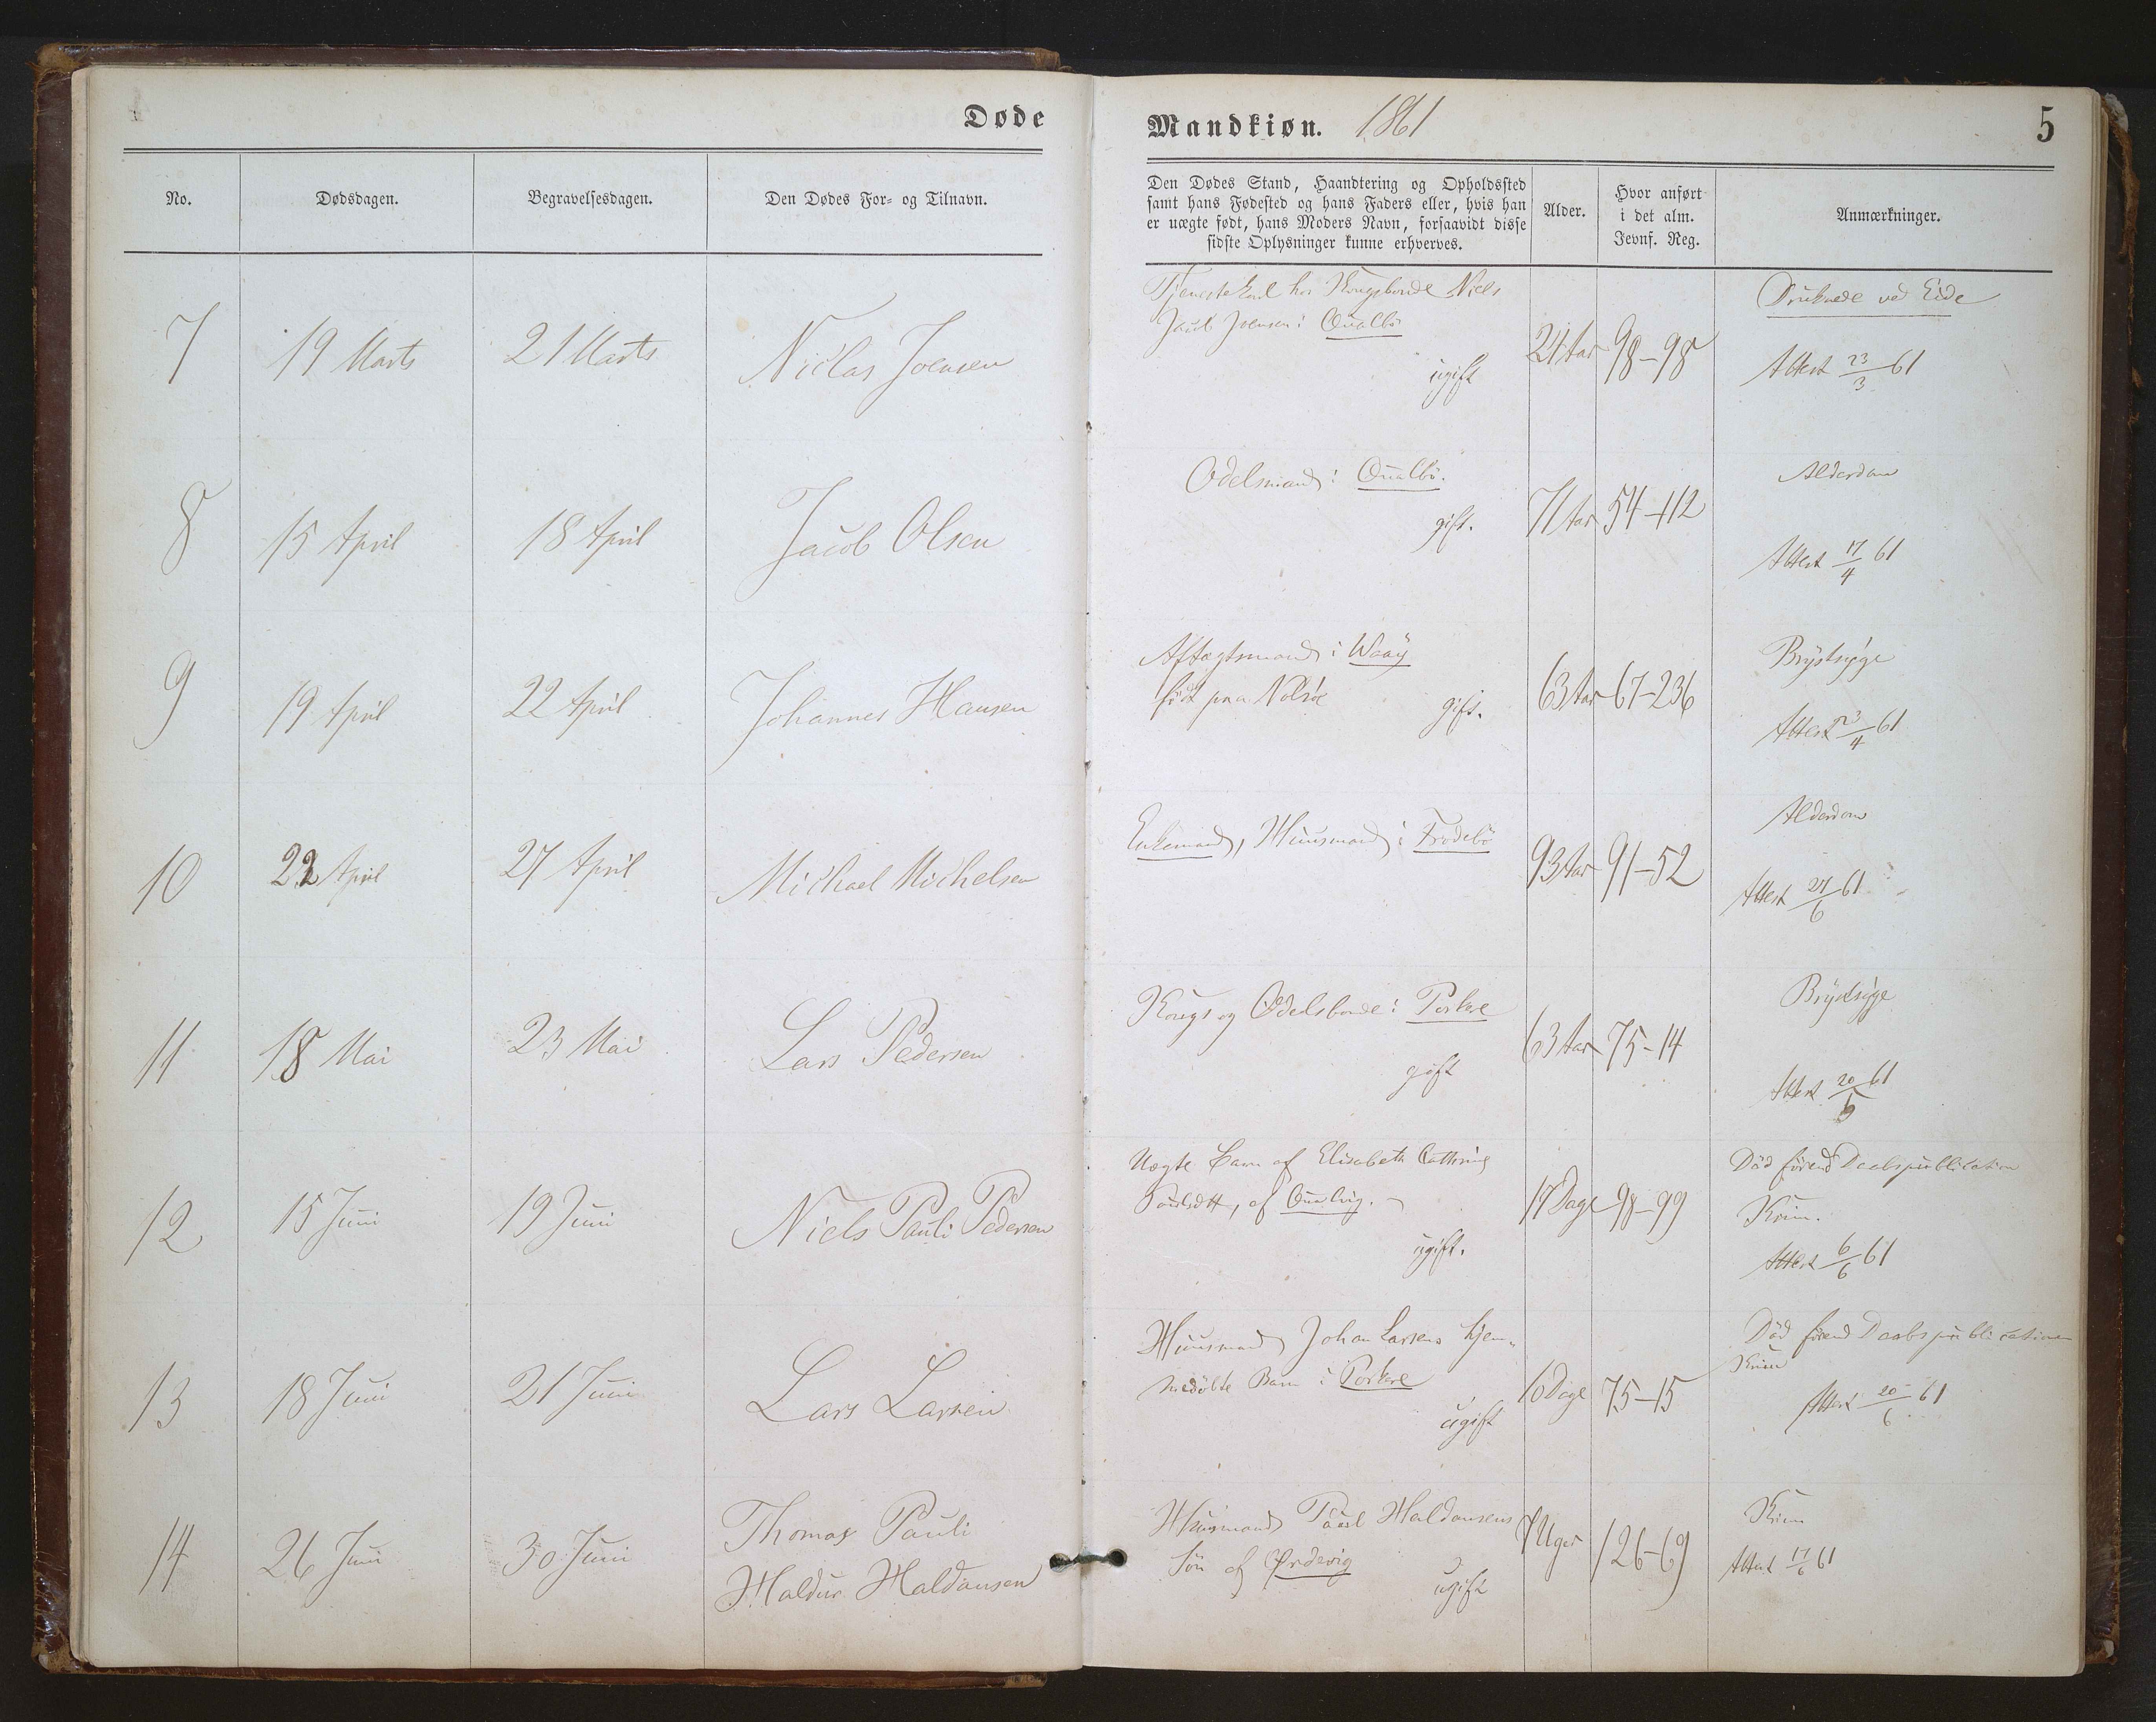 Døde
Mandkiøn. 1861
5
No.
Dødsdagen.
Begravelsesdagen.
Den Dødes For- og Tilnavn.
Den Dødes Stand, Haandtering og Opholdssted
samt hans Fødested og hans Faders eller, hvis han
er uægte født, hans Moders Navn, forsaavidt disse
sidste Oplysninger kunne erhverves.
Alder.
Hvor anført
i det alm.
Jevnf. Reg.
Anmærkninger.
7
19 Marts
21 Marts
Niclas Joensen
Tjenestekarl hos Kongsbonde Niels
Jacob Joensen i Qualbö
ugift
21 Aar
98-98
Druknede ved Eide
Attest 23/3 61
8
15 April
18 April
Jacob Olsen
Odelsmand i Qualbö.
gift.
71 Aar
54-112
Alderdom
Attest 17/4 61
9
19 April
22 April
Johannes Hansen
Aftægtsmand i Waag
født paa Nolsöe
gift.
63 Aar
67-236
Brystsyge
Attest /4 61
10
22 April
27 April
Michael Michelsen
Enkemand, Huusmand i Frodebö
93 Aar
91-52
Alderdom
Attest 27/6 61
11
18 Mai
23 Mai
Lars Pedersen
Kongs og Odelsbonde i Porkere
gift
63 Aar
75-14
Brystsyge
Attest 20/6 61
12
15 Juni
19 Juni
Niels Pauli Pedersen
Uægte Barn af Elisabeth Cathrine
Poulsdtt, af Qualvig.
ugift.
17 Dage
98-99
Död förend Daabspublication
Krim.
Attest 6/6 61
13
18 Juni
21 Juni
Lars Larsen
Huusmand Johan Larsens hjem-
medöbte Barn i Porkere
ugift
10 Dage
75-15
Död förend Daabspublicationen
Krim
Attest 20/6 61
14
26 Juni
30 Juni
Thomas Pauli
Haldur Haldansen
Huusmand Pouel Haldansens
Sön af Ördevig
ugift
7 Uger
126-69
Krim
Attest 17/6 61